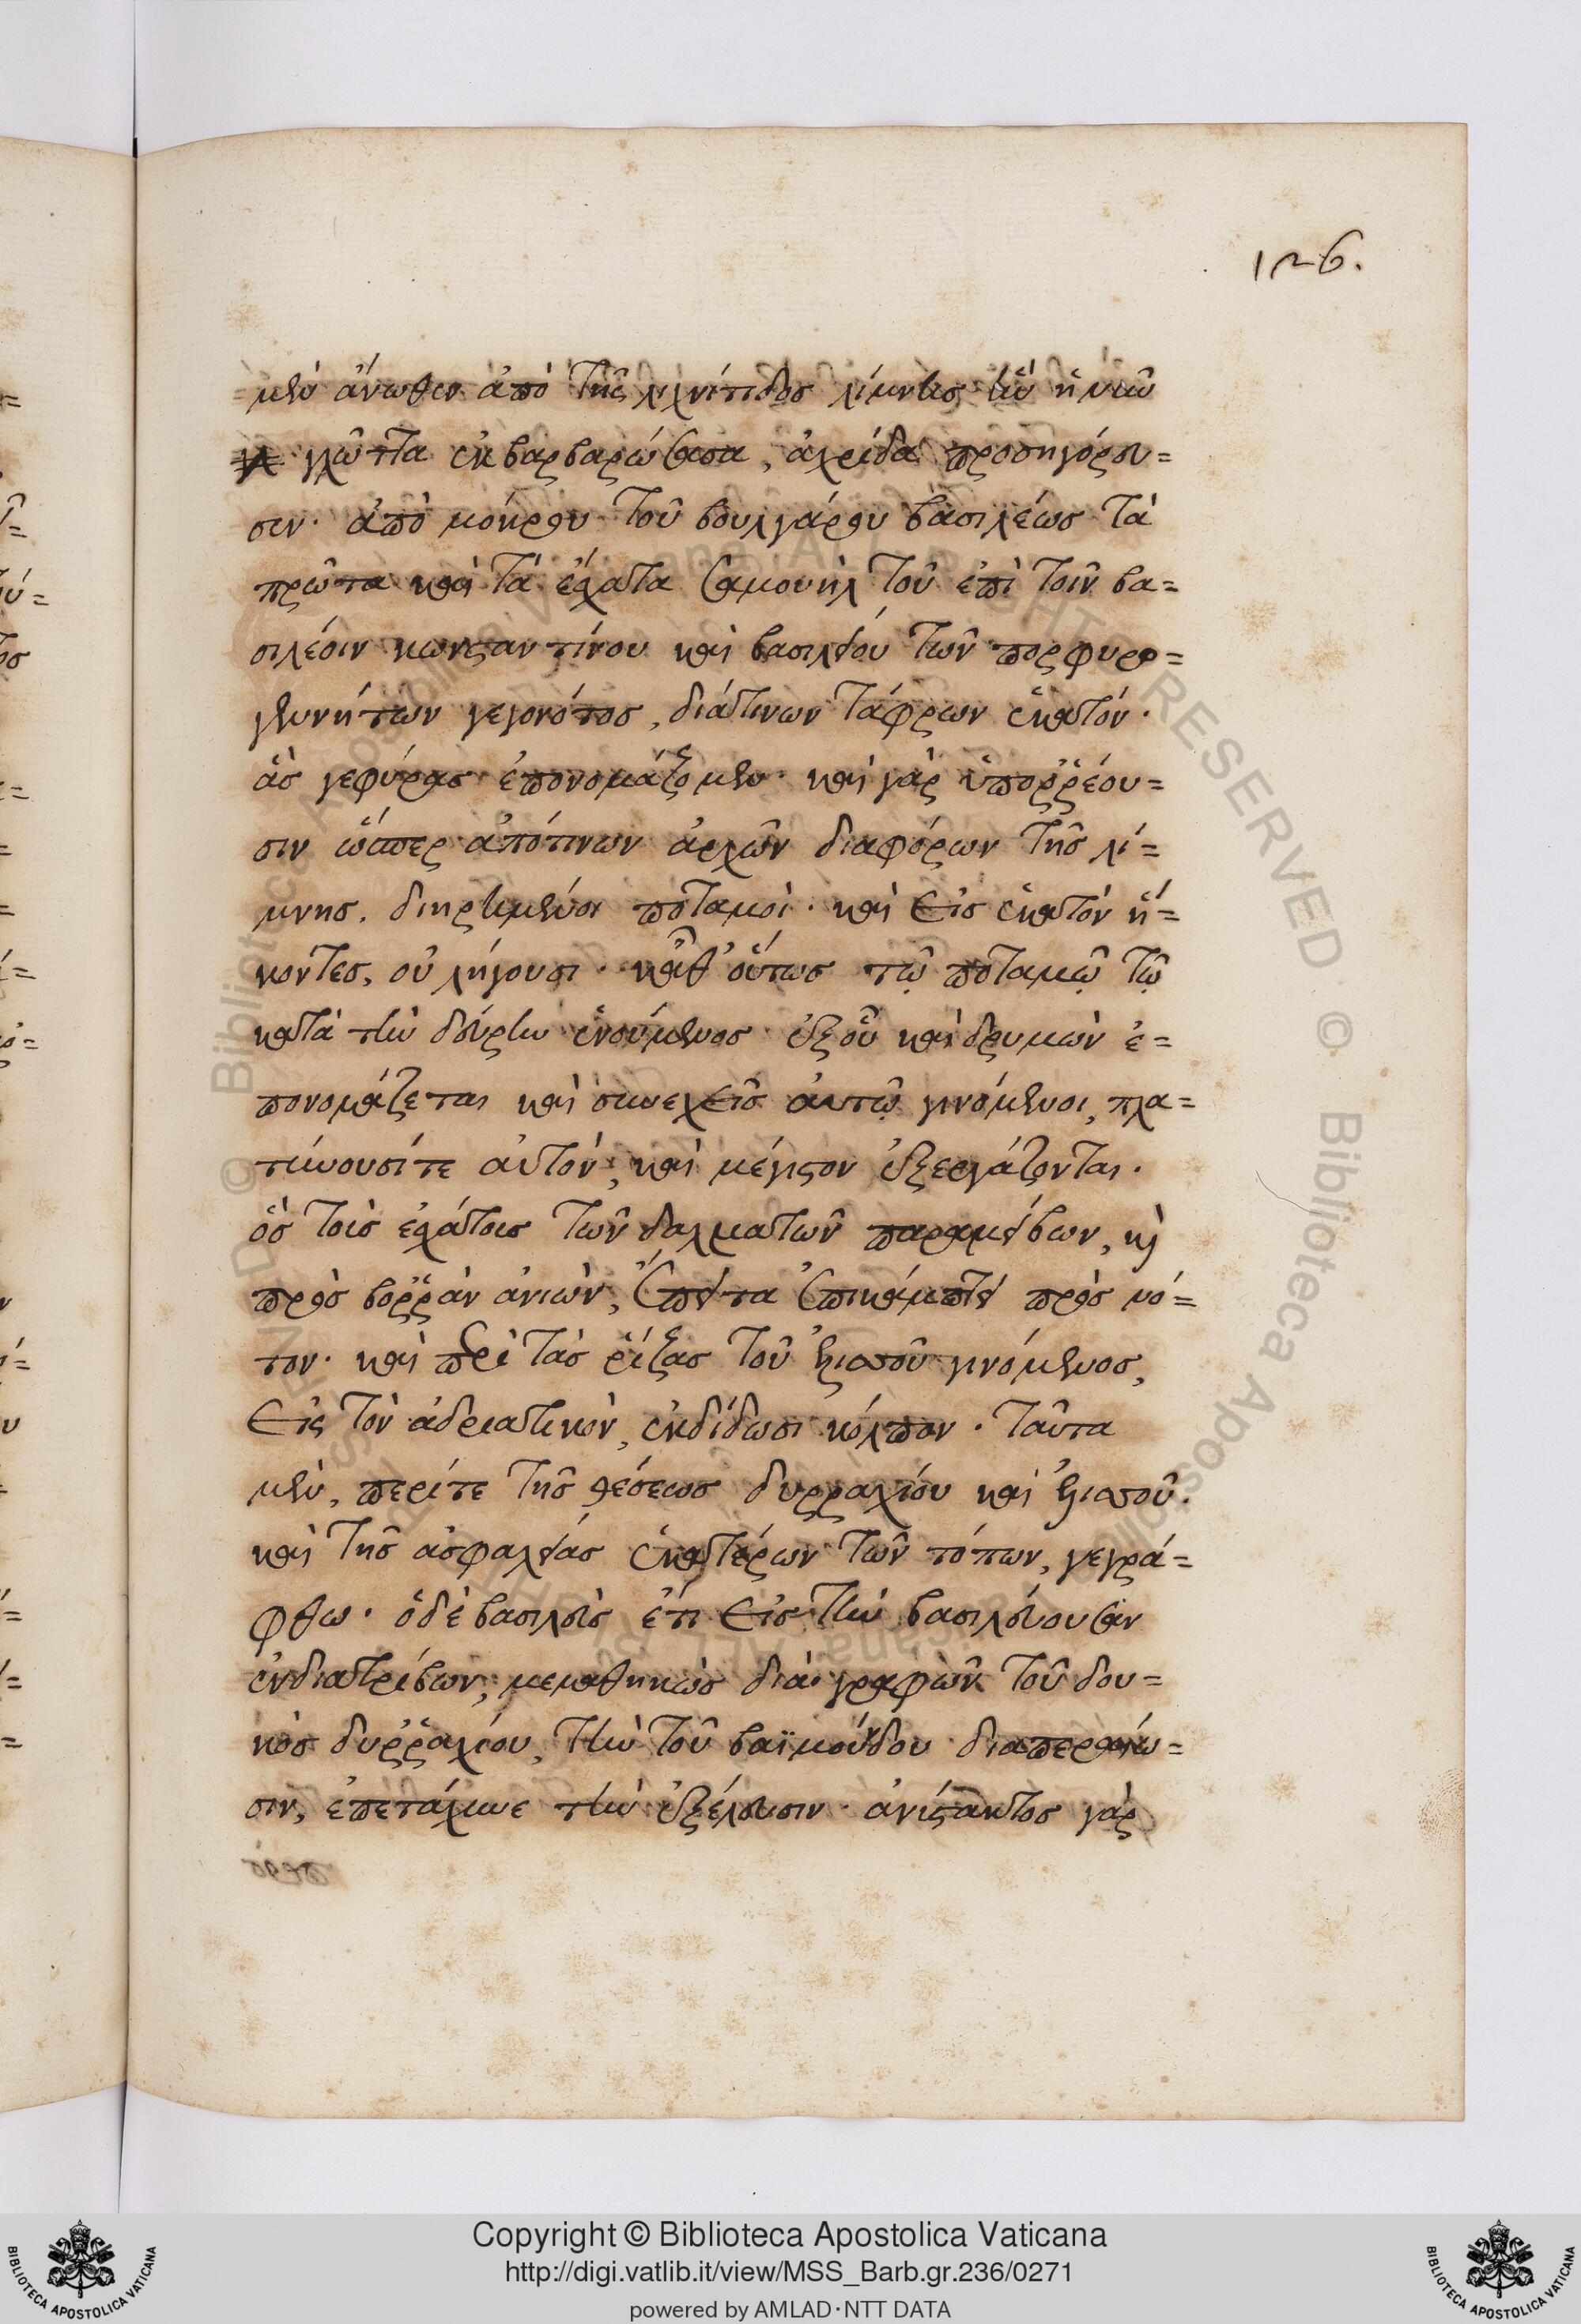 126.
μὲν ἄνωθεν ἀπὸ τῆς λιχνίτιδος λίμνης ἣν ἡ νῦν
γλῶττα ἐκβαρβαρώσασα, ἀχρίδα προσηγόρευ=
σιν· ἀπὸ μόκρου τοῦ βουλγάρου βασιλέως τὰ
πρῶτα καὶ τὰ ἔσχατα σαμουὴλ τοῦ ἐπὶ τοῖν βα=
σιλέοιν κωνσταντίνου καὶ βασιλείου τῶν πορφυρο=
γεννήτων γεγονότος, διάτινων τάφρων ἑκατόν·
ἃς γεφύρας ἐπονομάζομεν· καὶ γὰρ ὑποῤῥέου=
σιν ὥσπερ ἀπότινων ἀρχῶν διαφόρων τῆς λί=
μνης. διῃρημένοι ποταμοὶ· καὶ εἰς ἑκατόν ἥ=
κοντες, οὐ λήγουσι· κᾆθ' οὕτως τῷ ποταμῷ τῷ
κατὰ τὴν δεύρην ἑνούμενος· ἐξοῦ καὶ δρυμὼν ἐ=
πονομάζεται καὶ συνεχεῖς αὐτῷ γινόμενοι, πλα=
τύνουσίτε αὐτόν, καὶ μέγιστον ἐξεργάζονται.
ὃς τοῖς ἐσχάτοις τῶν δαλματῶν παραμείβων, κὶ
πρὸς βοῤῥὰν ἀνιὼν, ἔπειτα ἐπικάμπτει πρὸς νό=
τον· καὶ περὶ τὰς ῥίζας τοῦ ἐλισσοῦ γινόμενος,
εἰς τὸν ἀδριατικὸν, ἐκδίδωσι κόλπον. ταῦτα
μὲν, περίτε τῆς θέσεως δυρραχίου καὶ ἐλισσοῦ.
καὶ τῆς ἀσφαλείας ἑκατέρων τῶν τόπων, γεγρά=
φθω· ὁδὲ βασιλεὺς ἔτι εἰς τὴν βασιλεύουσαν
ἐνδιατρίβων, μεμαθηκὼς διὰ γραφῶν τοῦ δου=
κὸς δυῤῥαχίου, τὴν τοῦ βαϊμούνδου διαπεραίω=
σιν, ἐπετάχυνε τὴν ἐξέλευσιν· ἀνύστακτος γὰρ
Copyright © Biblioteca Apostolica Vaticana
http://digi.vatlib.it/view/MSS_Barb.gr.236/0271
powered by AMLAD·NTT DATA